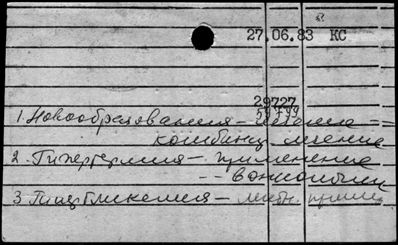 27.06.83 КС
29727
1. Новообразования – лечение –
комбинир. лечение
2. Гипертермия – применение
3. Гипергликемия –